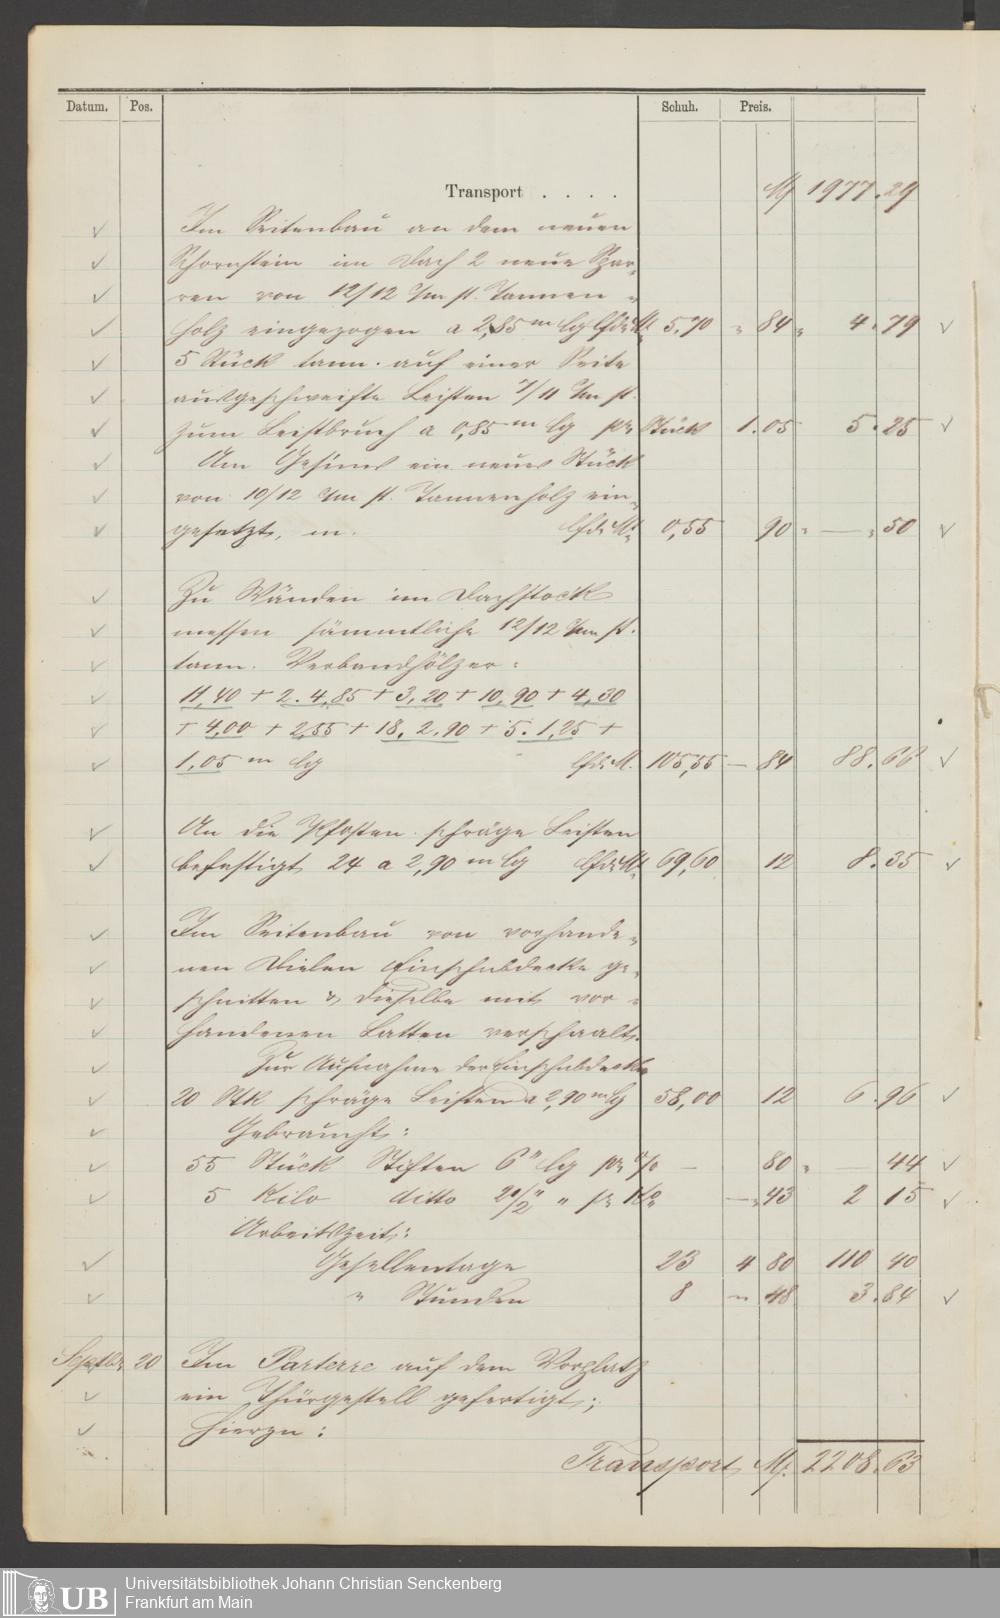 Datum. Pos. Schuh. Preis.
Transport . . . . M 1977.29
Im Seitenbau an dem neuen
Schornstein im Dach 2 neue Spar-
ren von 12/12 c/m st. Tannen-
holz eingezogen a 2,85 m lg lfd. M. 5,70 " 84 " 4.79
5 Stück tann. auf einer Seite
ausgeschweifte Leisten 7/11 c/m st.
zum Leistbruch a 0,85 m lg pr Stück 1.05 5.25
Am Gesims ein neues Stück
von 10/12 c/m st. Tannenholz ein-
gesetzt, m. lfd. M. 0,55 90 " — " 50
Zu Wänden im Dachstock
messen sämmtliche 12/12 c/m st.
tann. Verbandhölzer:
11,40 + 2. 4,85 + 3,20 + 10,90 + 4,30
+ 4,00 + 2,55 + 18. 2,90 + 5. 1,25 +
1,05 m lg lfd. M. 105,55 — 84 88.66
An die Pfosten schräge Leisten
befestigt 24 a 2,90 m lg lfd. M. 69,60 12 8.35
Im Seitenbau von vorhande-
nen Dielen Einschubdecke ge-
schnitten & dieselbe mit vor-
handenen Latten verschaalt.
Zur Aufnahme der Einschubdecke
20 Stk schräge Leisten a 2,90 m lg 58,00 12 6.96
Gebraucht:
55 Stück Stiften 6" lg pr % — 80 " — 44
5 Kilo ditto 2 1/2" " pr Ko — " 43 2 15
Arbeitszeit:
Gesellentage 23 4 80 110 40
" Stunden 8 " 48 3.84
Septbr 20 Im Parterre auf dem Vorplatz
ein Thürgestell gefertigt;
hierzu:
Transport M. 2208.63
UB
Universitätsbibliothek Johann Christian Senckenberg
Frankfurt am Main